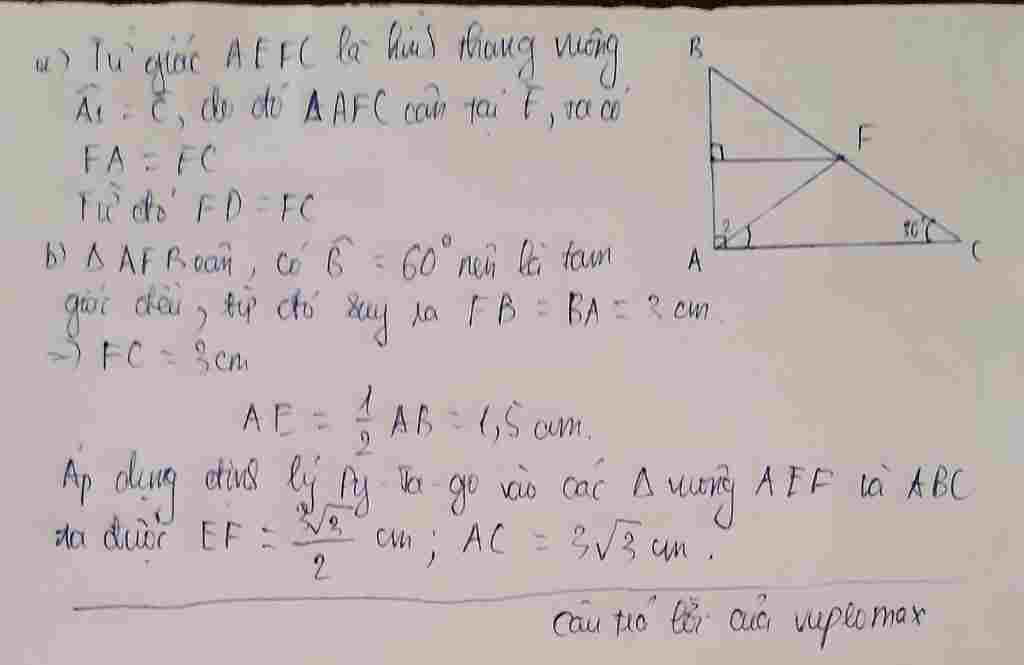 a) Tứ giác AEFC là hình thang vuông
Â₁ = Ĉ, do đó ΔAFC cân tại F, ta có
FA = FC
Từ đó FD = FC
b) Δ AFB cân, có B̂ = 60° nên là tam
giác đều, từ đó suy ra FB = BA = 3 cm.
=> FC = 3cm
AE = 1/2 AB = 1,5 cm.
Áp dụng định lý Py-ta-go vào các Δ vuông AEF và ABC
ta được EF = 3√3/2 cm; AC = 3√3 cm.
câu trả lời của vuplomax
B
F
A
2
C